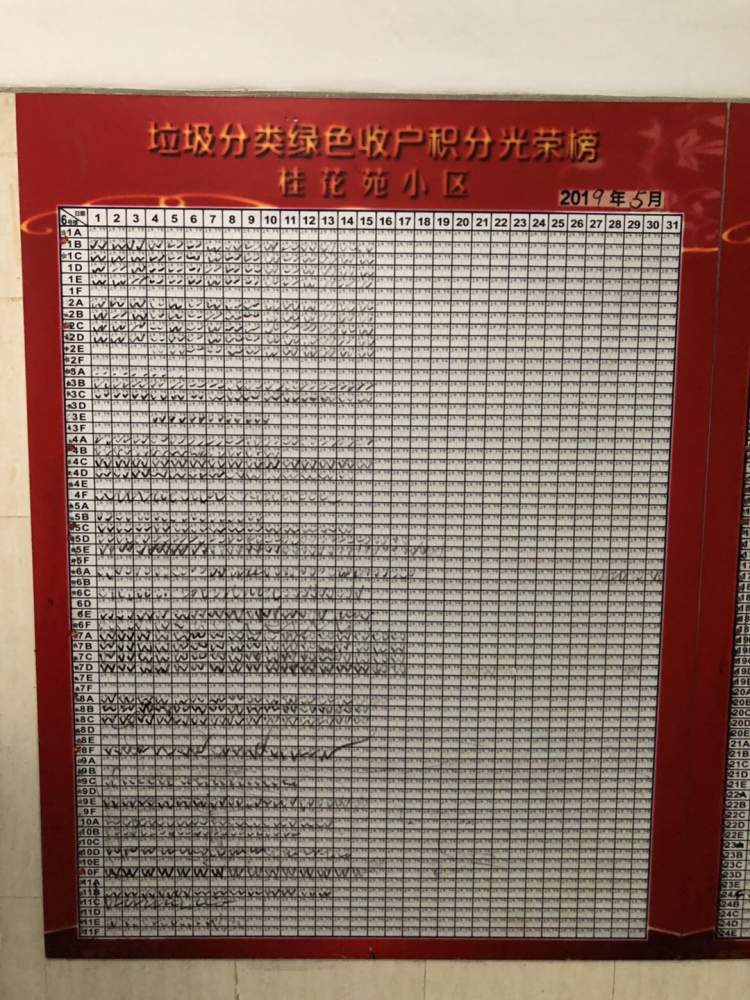 垃圾分类绿色收户积分光荣榜
桂花苑小区
2019年5月
日期
6号楼 1 2 3 4 5 6 7 8 9 10 11 12 13 14 15 16 17 18 19 20 21 22 23 24 25 26 27 28 29 30 31
1A
1B
1C
1D
1E
1F
2A
2B
2C
2D
2E
2F
3A
3B
3C
3D
3E
3F
4A
4B
4C
4D
4E
4F
5A
5B
5C
5D
5E
5F
6A
6B
6C
6D
6E
6F
7A
7B
7C
7D
7E
7F
8A
8B
8C
8D
8E
8F
9A
9B
9C
9D
9E
9F
10A
10B
10C
10D
10E
10F
11A
11B
11C
11D
11E
11F
20B
20C
20D
20E
21A
21B
21C
21D
21E
22A
22B
22C
22D
22E
23B
23C
23D
23E
24B
24C
24D
24E